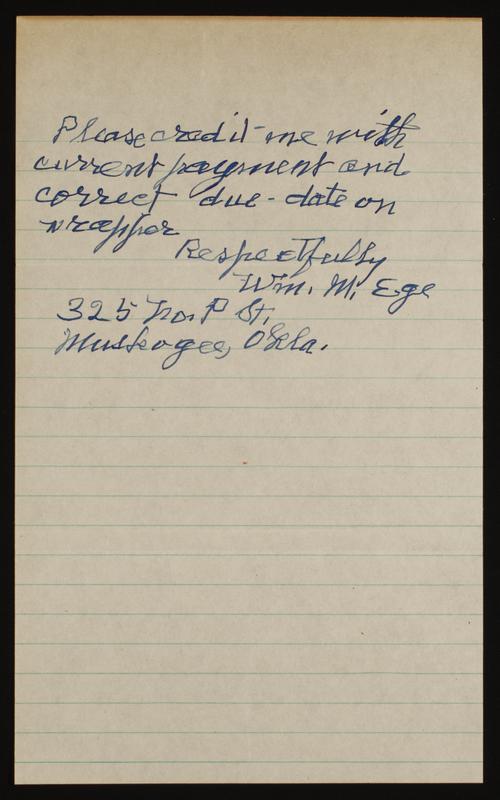 Please credit me with
current payment and
correct due-date on
wrapper
Respectfully
Wm. M. Ege
325 No. P St.
Muskogee, Okla.